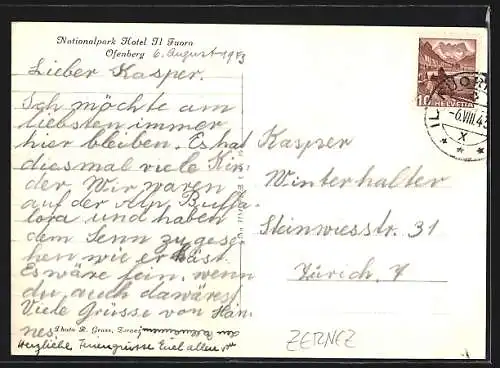 Nationalpark Hotel Il Fuorn
Ofenberg 6. August 1943
Lieber Kasper.
Ich möchte am
liebsten immer
hier bleiben. Es hat
diesmal viele Kin-
der. Wir waren
auf der Alp, Buffa-
lora und haben
dem Senn zu gese-
hen wie er käst.
Es wäre fein, wenn
du auch dawäres!
Viele Grüsse von Han-
nes.
Photo R. Grass, Zernez
Herzliche Feriengrüsse Euch allen
10 HELVETIA
IL FUORN
-6.VIII.43
X
Kasper
Winterhalter
Steinwiesstr. 31
Zürich, 7
ZERNEZ